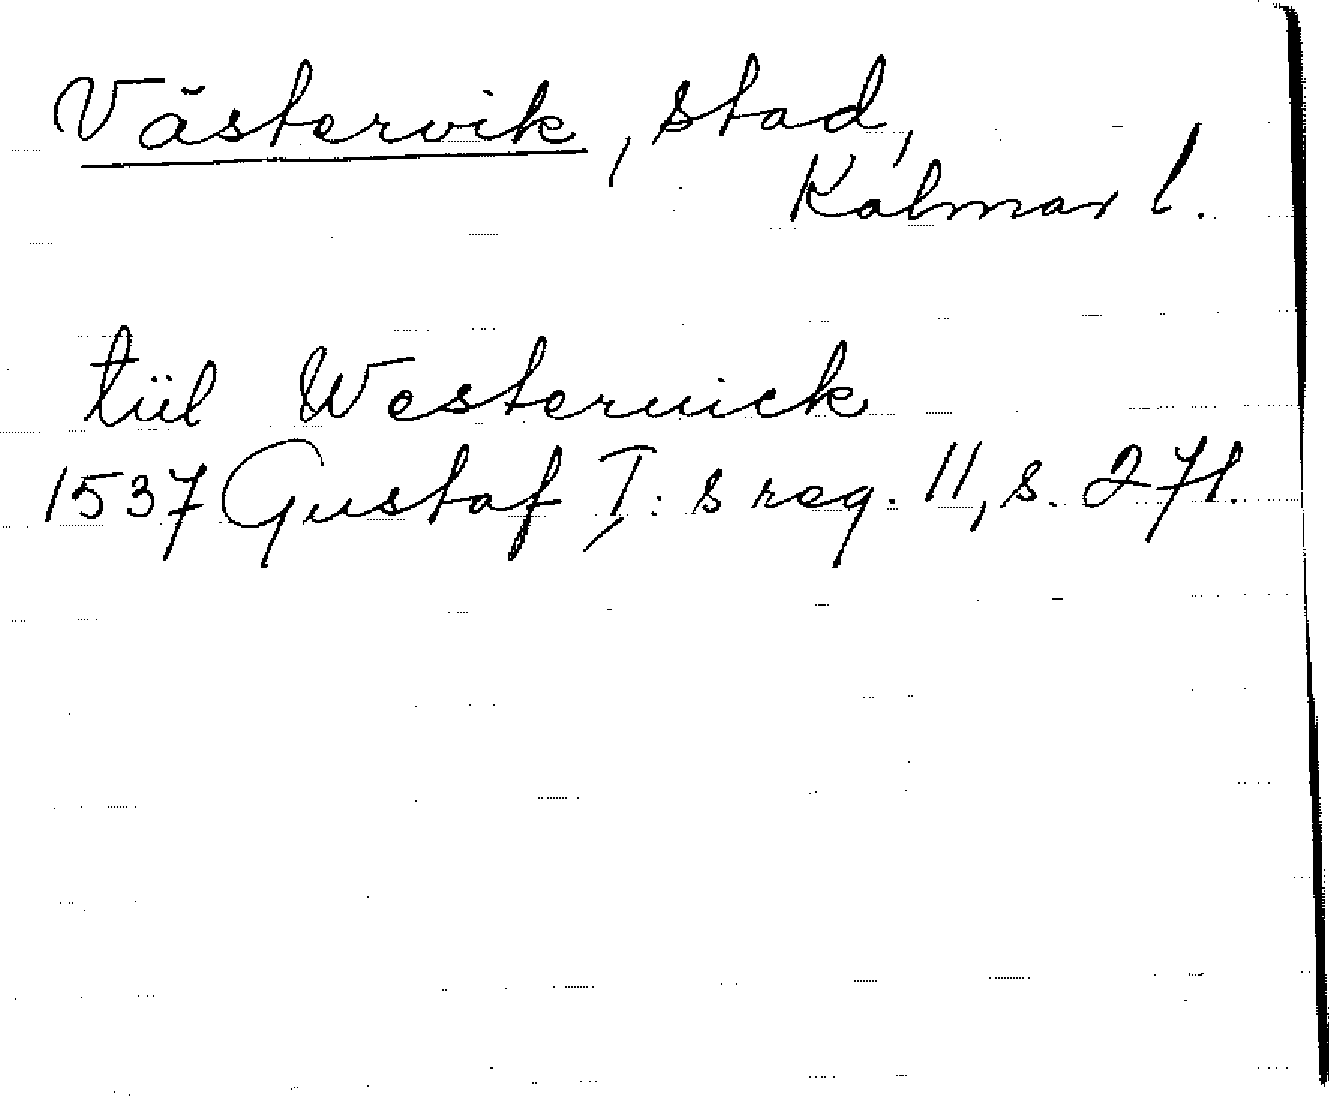 Västervik, stad,
Kalmar l.
tiil Westeruick
1537 Gustaf I:s reg. 11, s. 271.